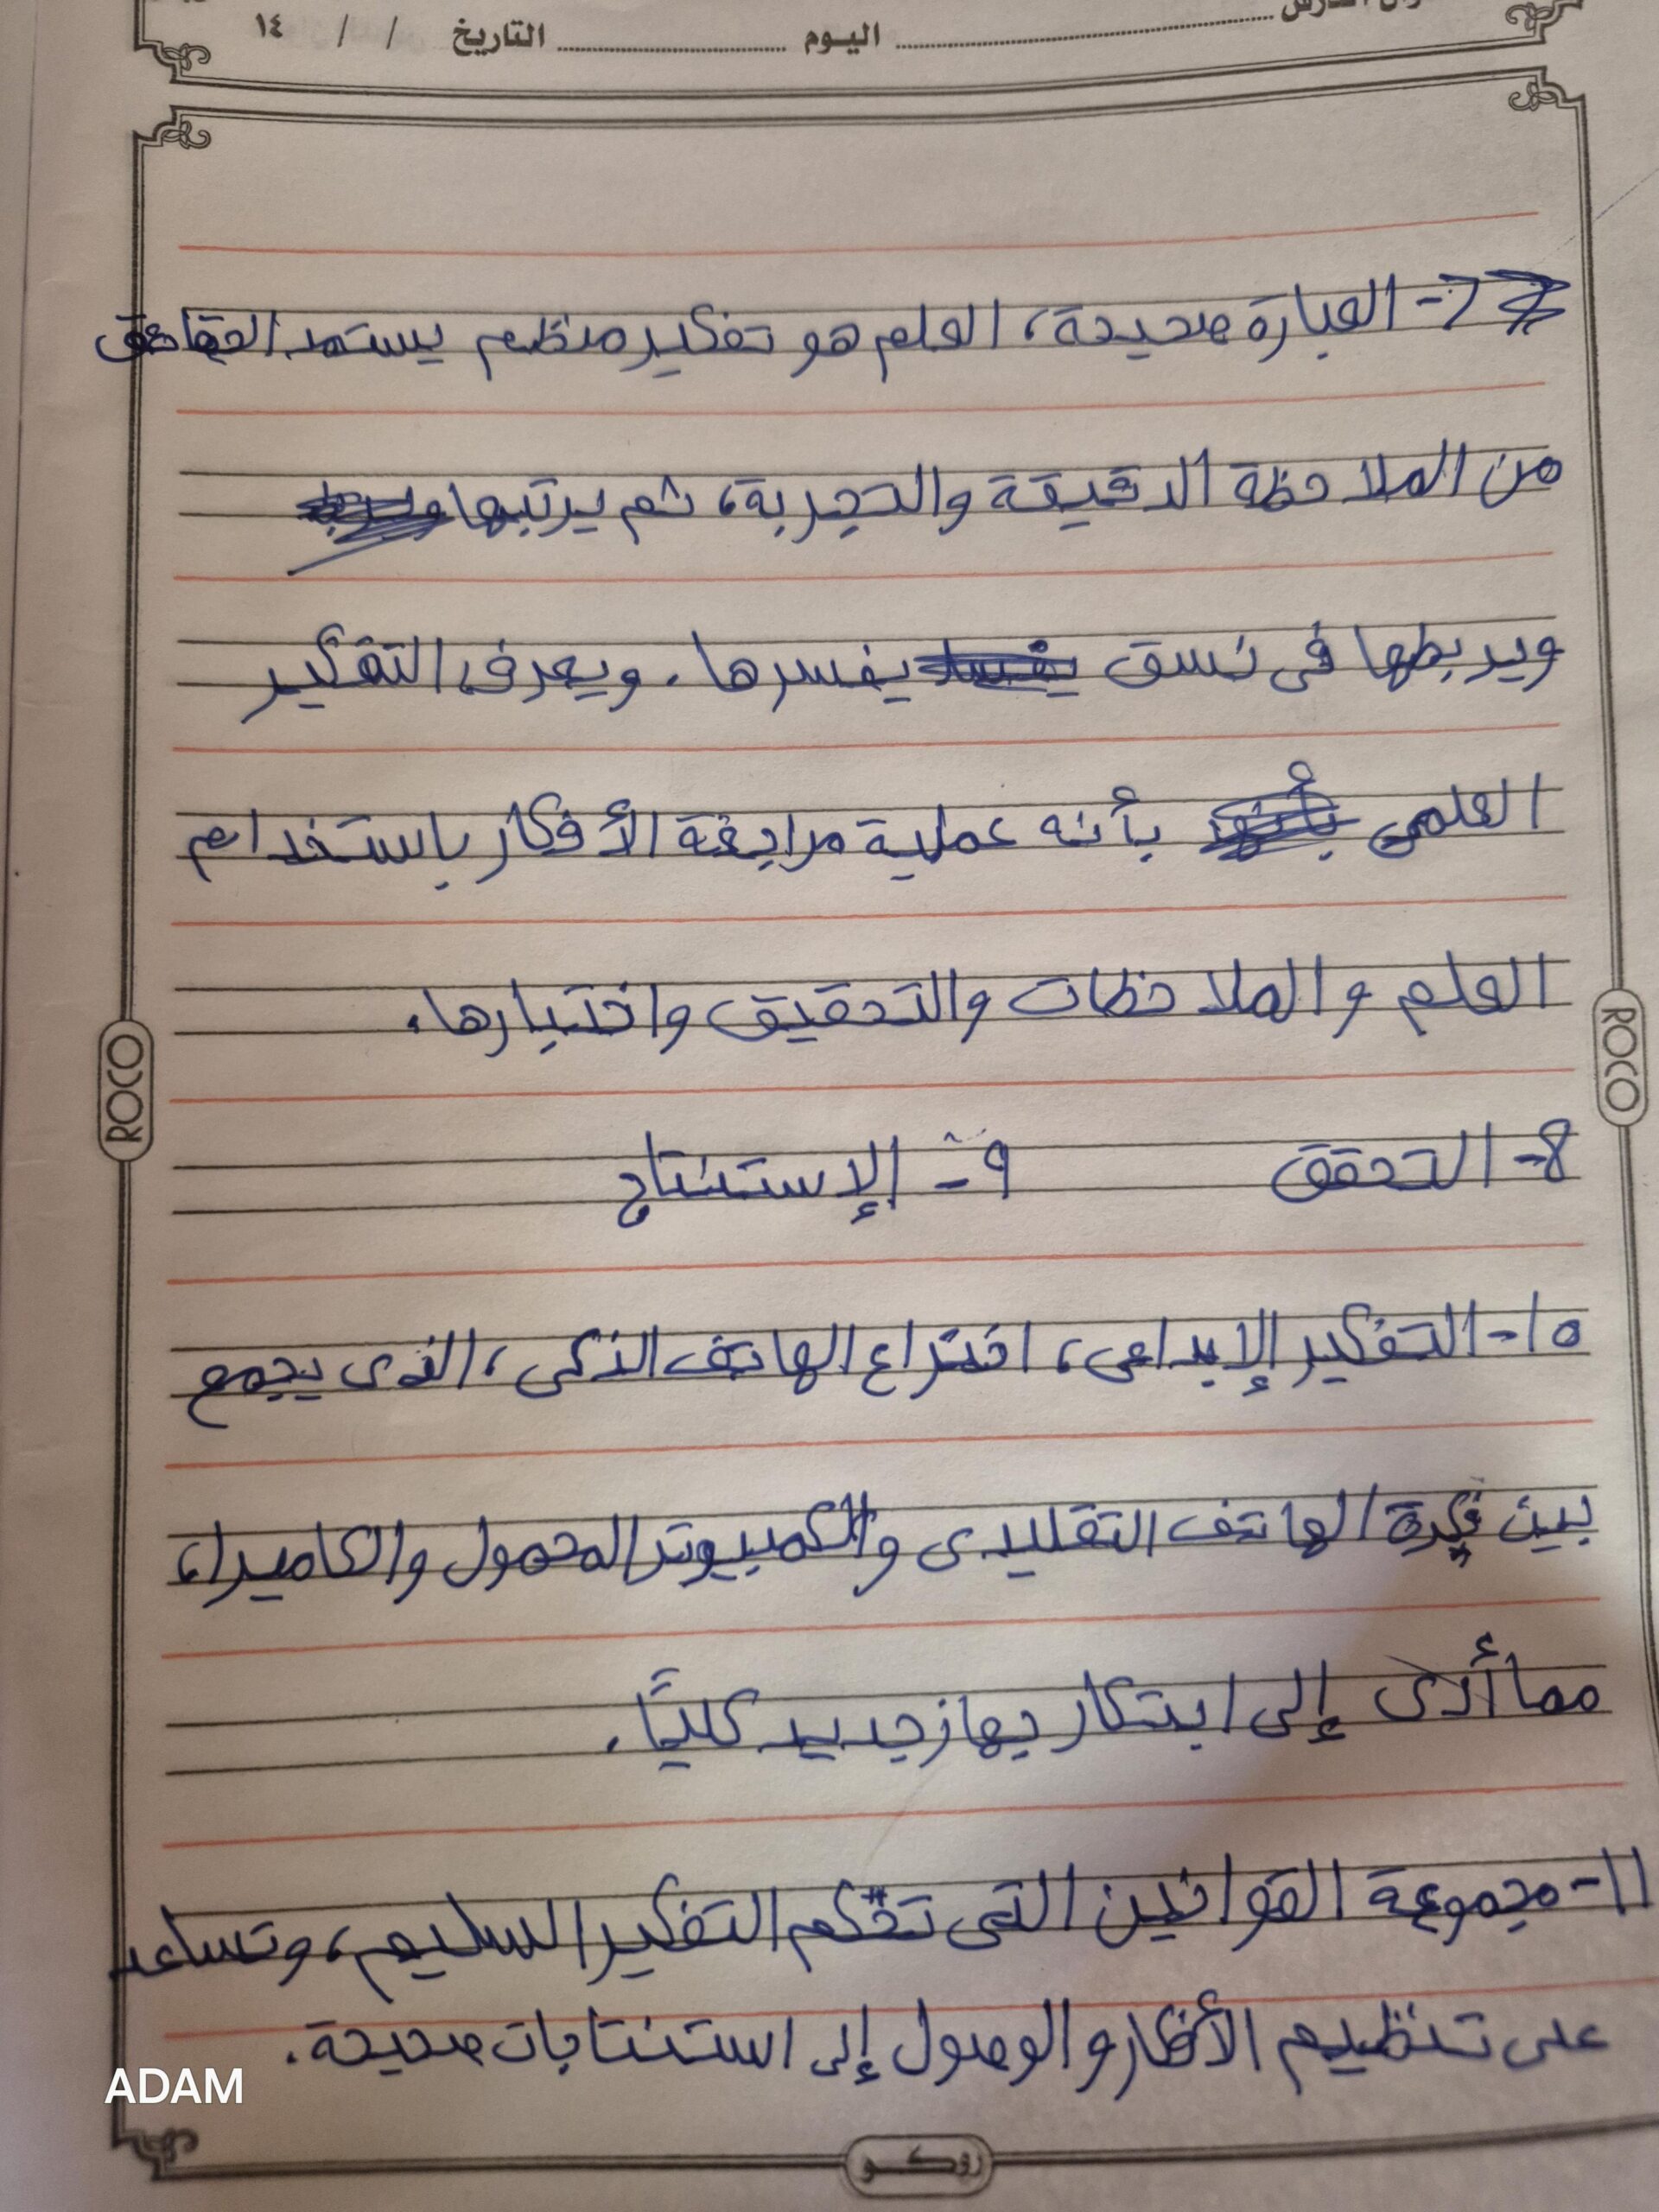 اليوم ............ التاريخ / / ١٤
7- العبارة صحيحة، العلم هو تفكير منظم يستمد الحقائق
من الملاحظة الدقيقة والتجربة، ثم يرتبها
ويربطها فى نسق يفسرها. ويعرف التفكير
العلمي بأنه عملية مراجعة الأفكار باستخدام
العلم والملاحظات والتحقيق واختبارها.
8- التحقق 9- الإستنتاج
10- التفكير الإبداعى، اختراع الهاتف الذكى، الذى يجمع
بين فكرة الهاتف التقليدى والكمبيوتر المحمول والكاميرا،
مما أدى إلى ابتكار جهاز جديد كليًا.
11- مجموعة القوانين التى تحكم التفكير السليم، وتساعد
على تنظيم الأفكار والوصول إلى استنتاجات صحيحة.
ROCO
ROCO
ADAM
روكو